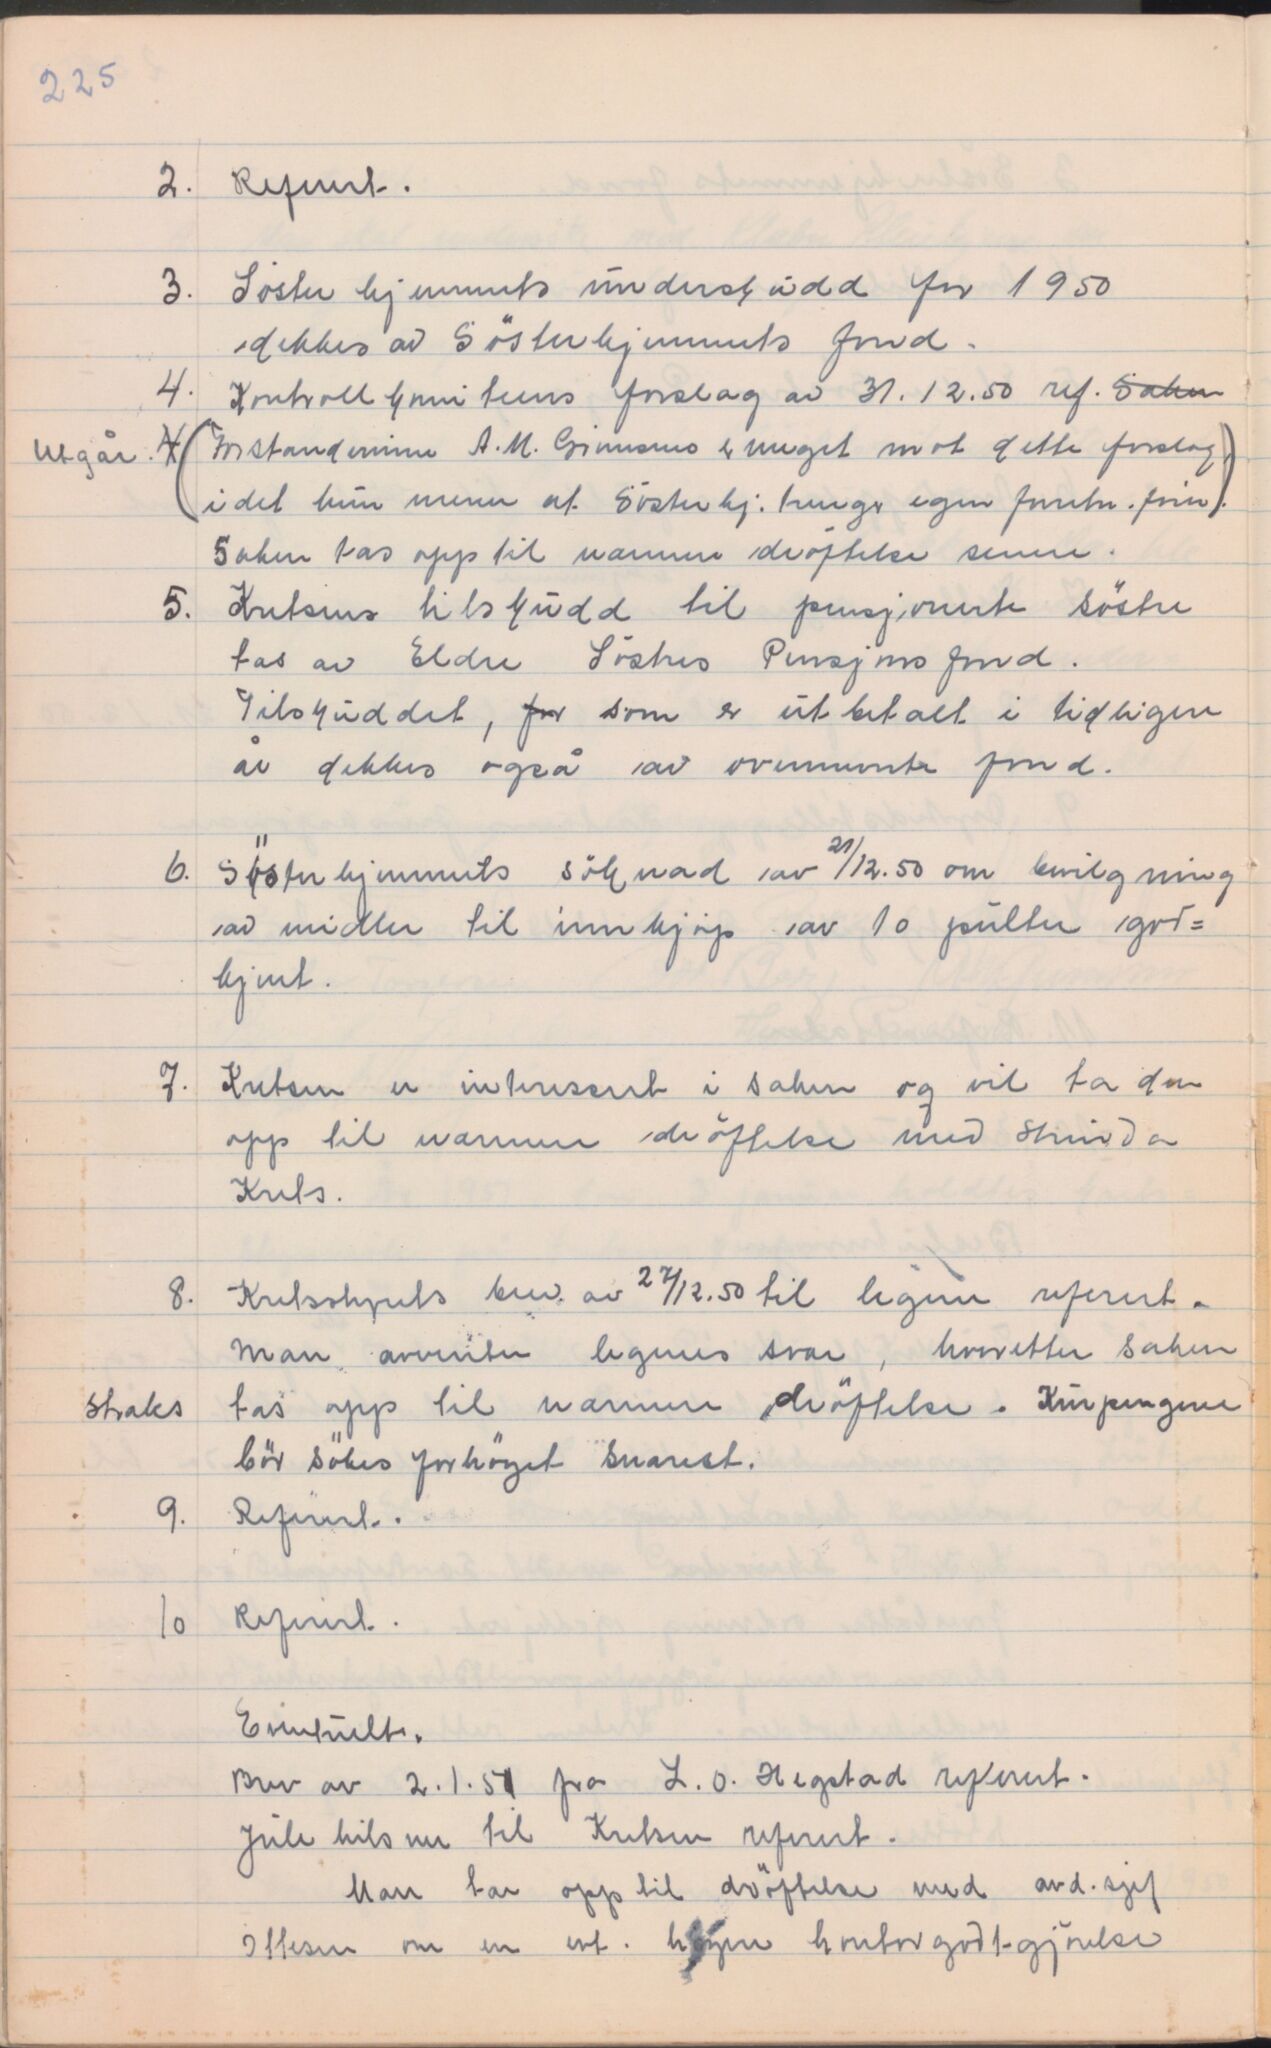 225
2. Referert.
3. Søsterhjemmets underskudd for 1950
dekkes av Søsterhjemmets fond.
4. Kontrollkomiteens forslag av 31.12.50 ref. Saken
Utgår. X (Forstanderinne A. M. er meget mot dette forslag,
idet hun mener at Søsterhj. trenger egen forretn.før.).
Saken tas opp til nærmere drøftelse senere.
5. Kretsens tilskudd til pensjonerte søstre
tas av Eldre Søstres Pensjonsfond.
Tilskuddet, for som er utbetalt i tidligere
år dekkes også av ovennevnte fond.
6. Søsterhjemmets søknad av 21/12.50 om bevilgning
av midler til innkjøp av 10 pulter god=
kjent.
7. Kretsen er interessert i saken og vil ta den
opp til nærmere drøftelse med Strinda
Krets.
8. Kretsstyrets brev av 27/12.50 til legene referert.
Man avventer legenes svar, hvoretter saken
straks tas opp til nærmere drøftelse. Kurpengene
bør søkes forhøyet snarest.
9. Referert.
10 Referert.
Eventuelt.
Brev av 2.1.51 fra L. O. Hegstad referert.
Julehilsner til Kretsen referert.
Man tar opp til drøftelse med avd. sjef
Ottesen om en evt. høyere kontorgodtgjørelse